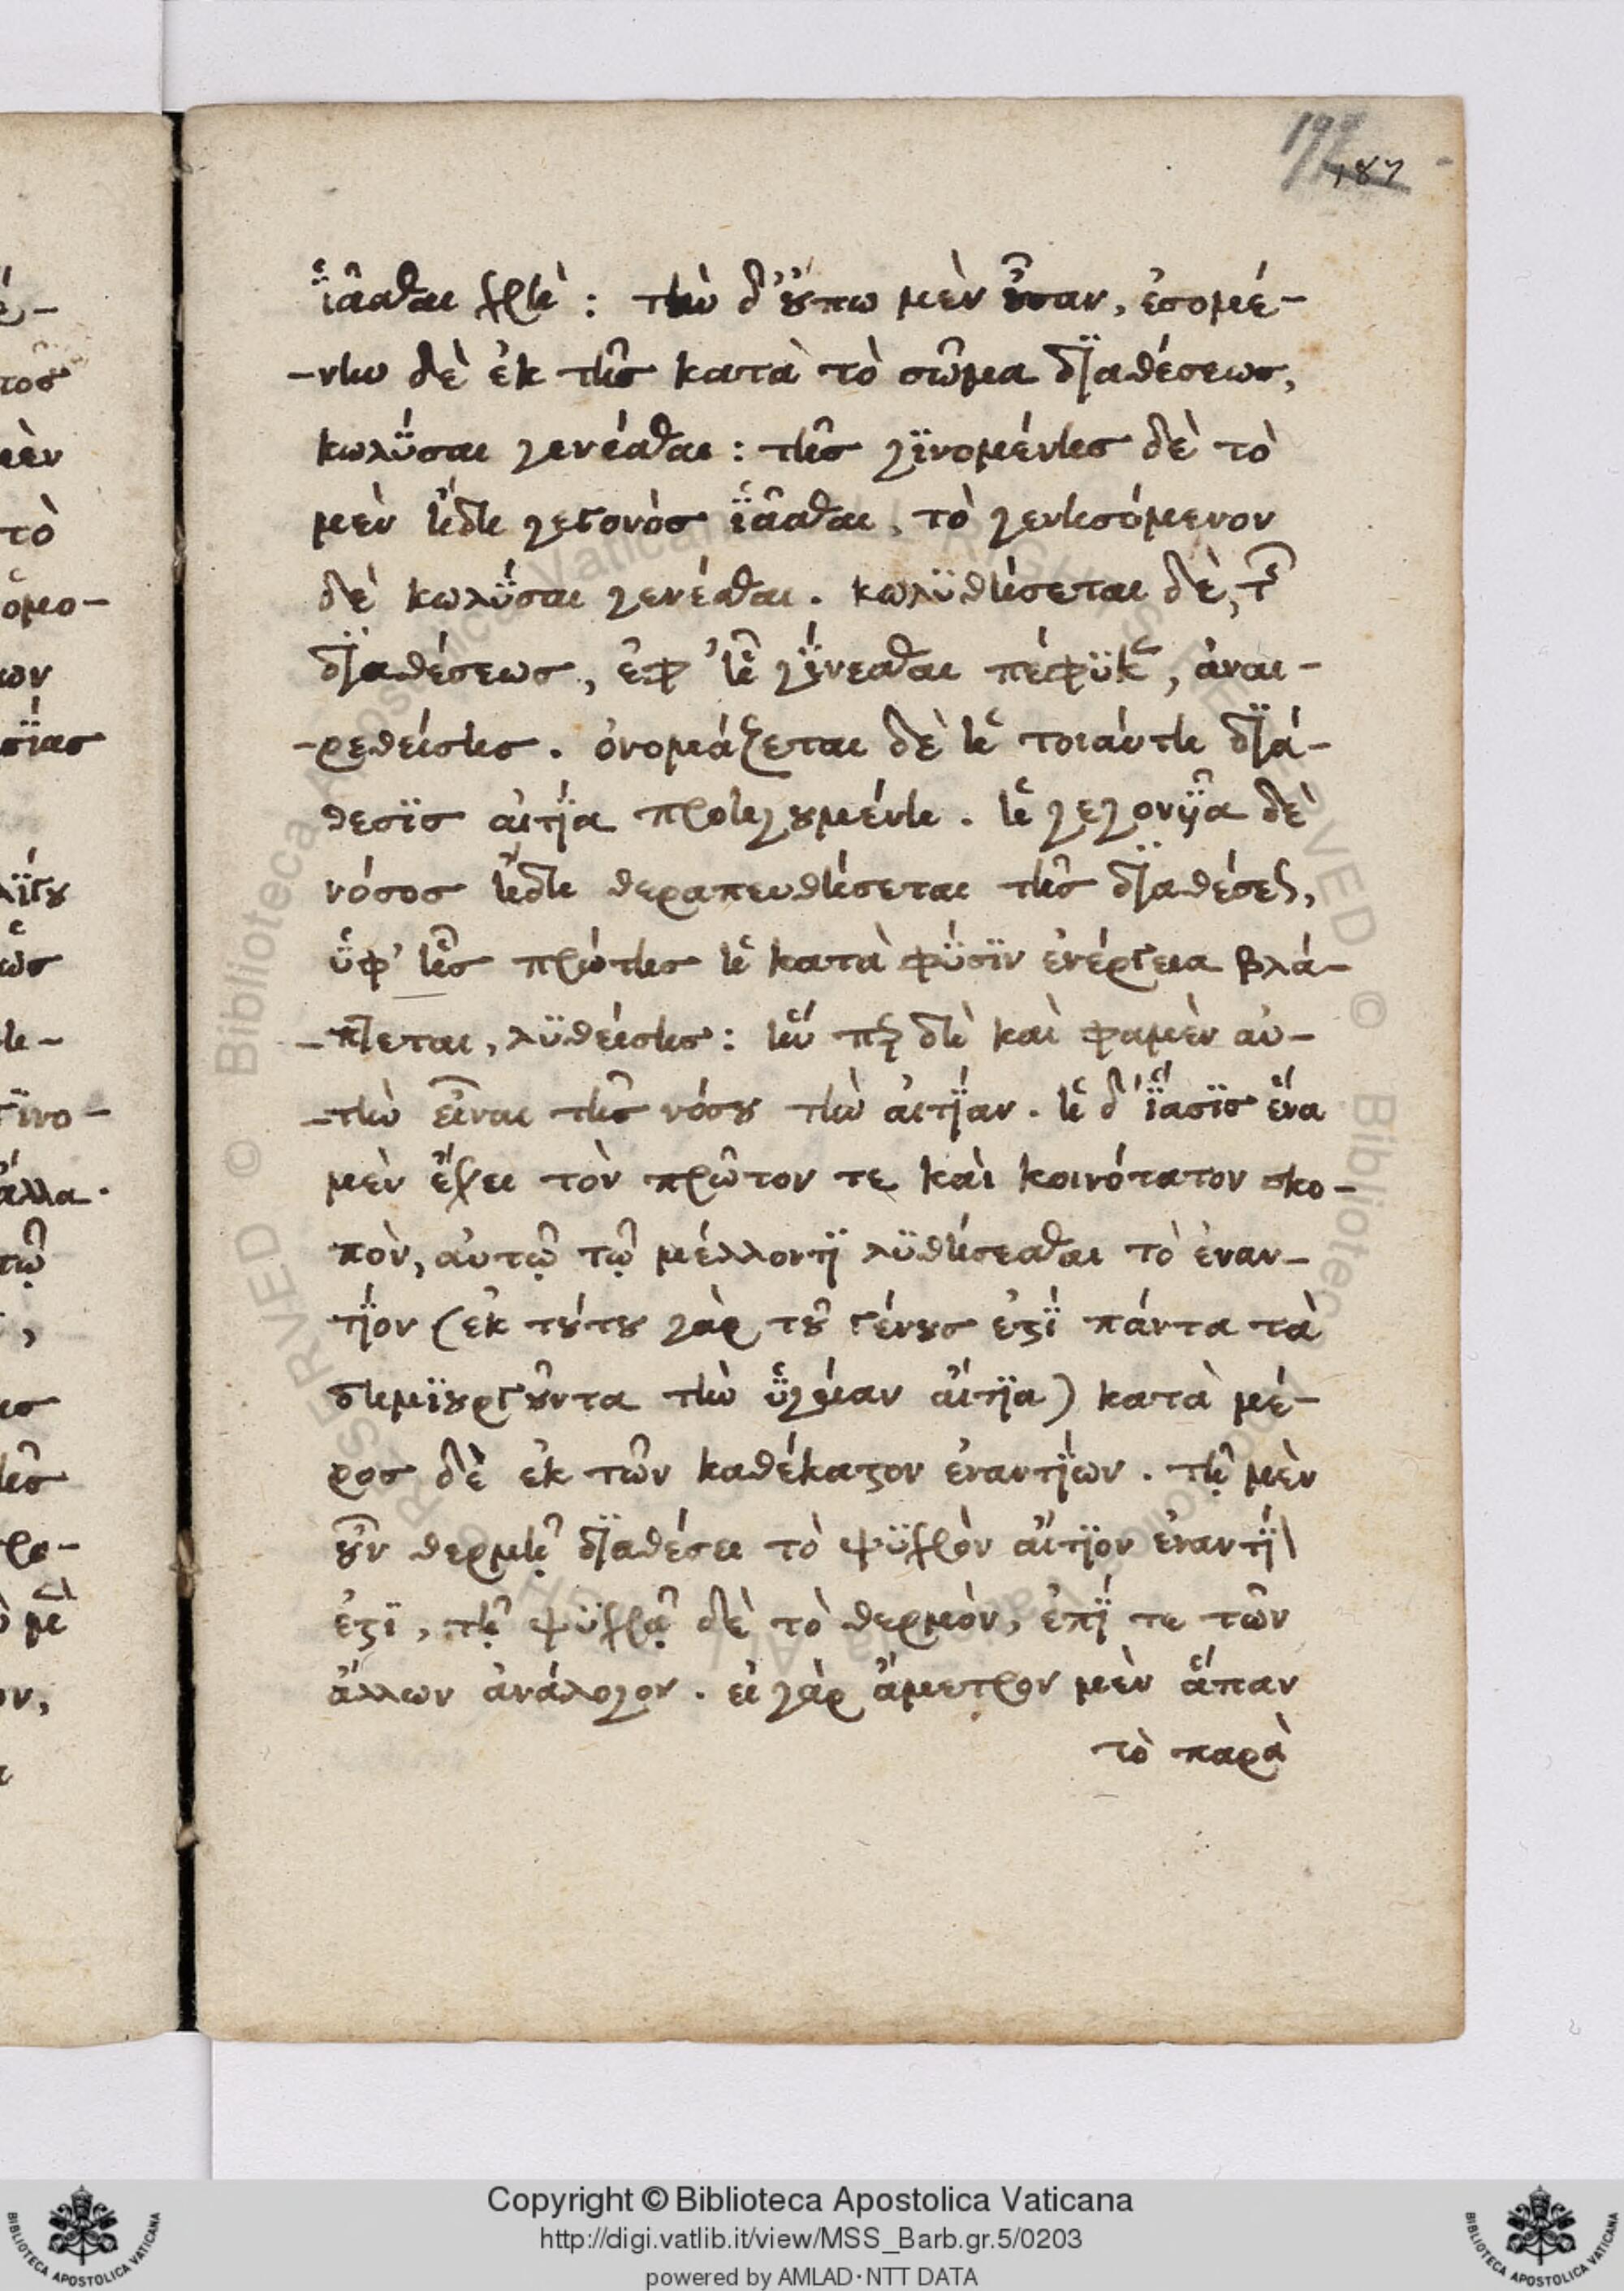 192
187
ἰᾶσθαι χρὴ: τὴν δ' οὔπω μὲν οὖσαν, ἐσομέ-
-νην δὲ ἐκ τῆς κατὰ τὸ σῶμα διαθέσεως,
κωλύσαι γενέσθαι: τῆς γινομένης δὲ τὸ
μὲν ἤδη γεγονός ἰᾶσθαι, τὸ γενησόμενον
δὲ κωλύσαι γενέσθαι. κωλυθήσεται δὲ, τῆς
διαθέσεως, ἐφ' ᾗ γίνεσθαι πέφυκε, ἀναι-
-ρεθείσης. ὀνομάζεται δὲ ἡ τοιαύτη διά-
θεσις αἰτία προηγουμένη. ἡ γεγονυῖα δὲ
νόσος ἤδη θεραπευθήσεται τῆς διαθέσεως,
ὑφ' ἧς πρώτης ἡ κατὰ φύσιν ἐνέργεια βλά-
-πτεται, λυθείσης: ἣν περ δὴ καὶ φαμὲν αὐ-
-τὴν εἶναι τῆς νόσου τὴν αἰτίαν. ἡ δ' ἴασις ἕνα
μὲν ἔχει τὸν πρῶτον τε καὶ κοινότατον σκο-
πὸν, αὐτῷ τῷ μέλλοντι λυθήσεσθαι τὸ ἐναν-
τίον (ἐκ τούτου γὰρ τοῦ γένους ἐστὶ πάντα τὰ
δημιουργοῦντα τὴν ὑγείαν αἴτια) κατὰ μέ-
ρος δὲ ἐκ τῶν καθέκαστον ἐναντίων. τῇ μὲν
οὖν θερμῇ διαθέσει τὸ ψυχρὸν αἴτιον ἐναντίον
ἐστι, τῇ ψυχρᾷ δὲ τὸ θερμὸν, ἐπί τε τῶν
ἄλλων ἀνάλογον. εἰ γὰρ ἄμετρον μὲν ἅπαν
τὸ παρὰ
Copyright © Biblioteca Apostolica Vaticana
http://digi.vatlib.it/view/MSS_Barb.gr.5/0203
powered by AMLAD·NTT DATA